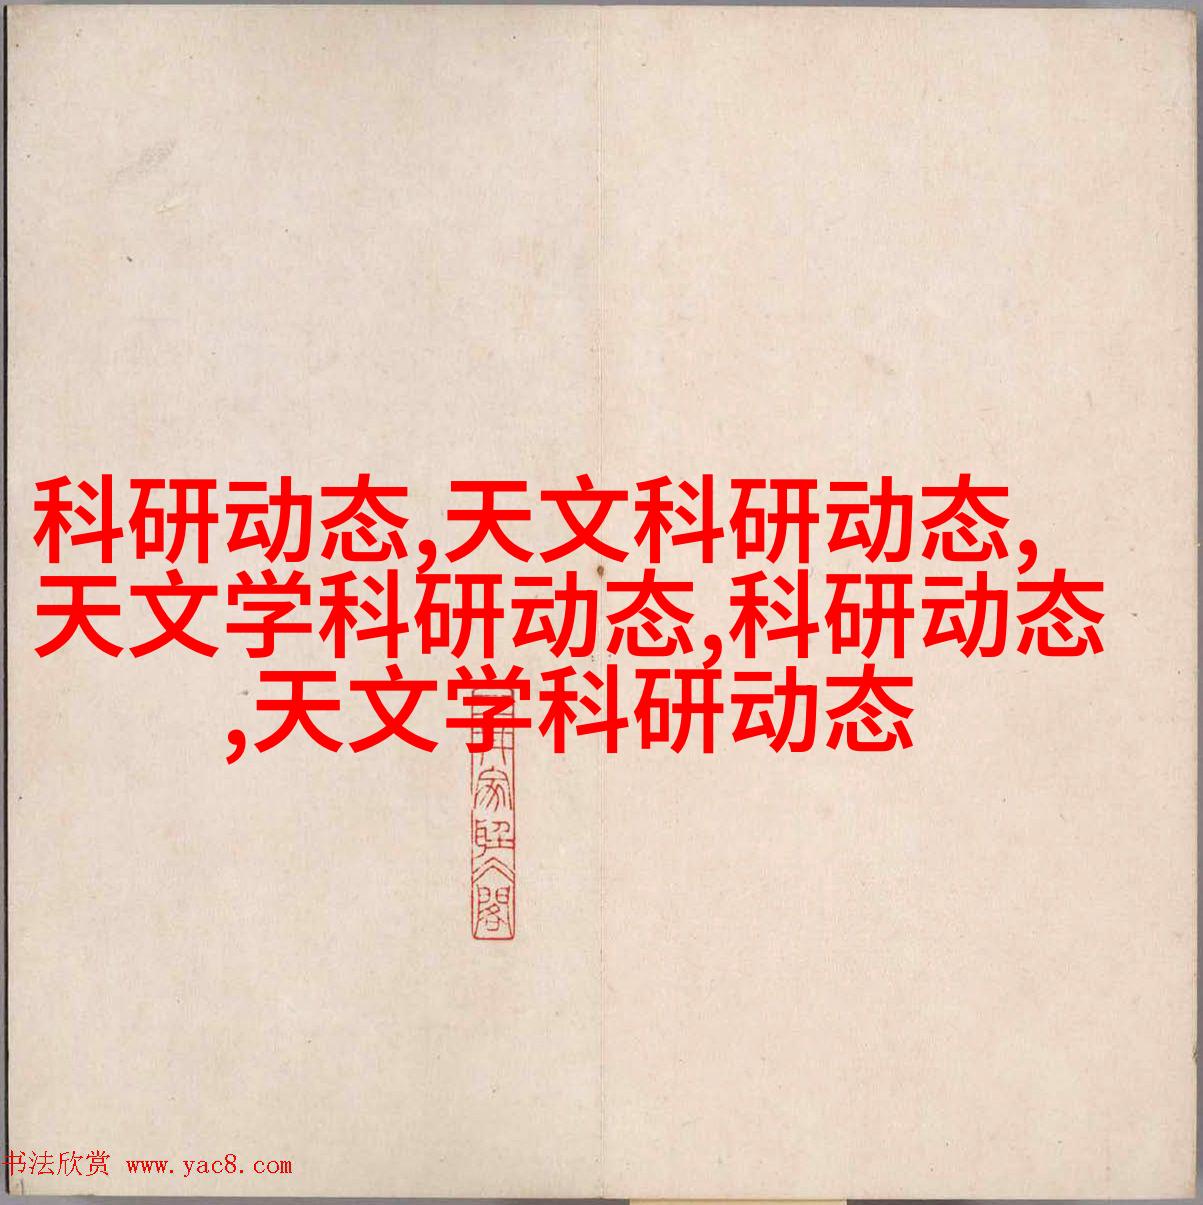 科研动态,天文科研动态,
天文学科研动态,科研动态
,天文学科研动态
家
閣
书法欣赏 www.yac8.com